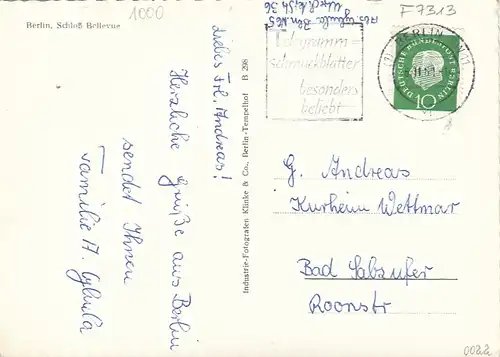 Berlin, Schloß Bellevue
1000
F 7313
Liebes Frl. Andreas!
Herzliche Grüße aus Berlin
sendet Ihnen
Familie A.
Industrie-Fotografen Klinke & Co., Berlin-Tempelhof B 298
Telegramm=
schmuckblätter
besonders
beliebt
BERLIN
DEUTSCHE BUNDESPOST BERLIN
10
G. Andreas
Kurheim Wettmar
Bad Salzufer
Roonstr
0022